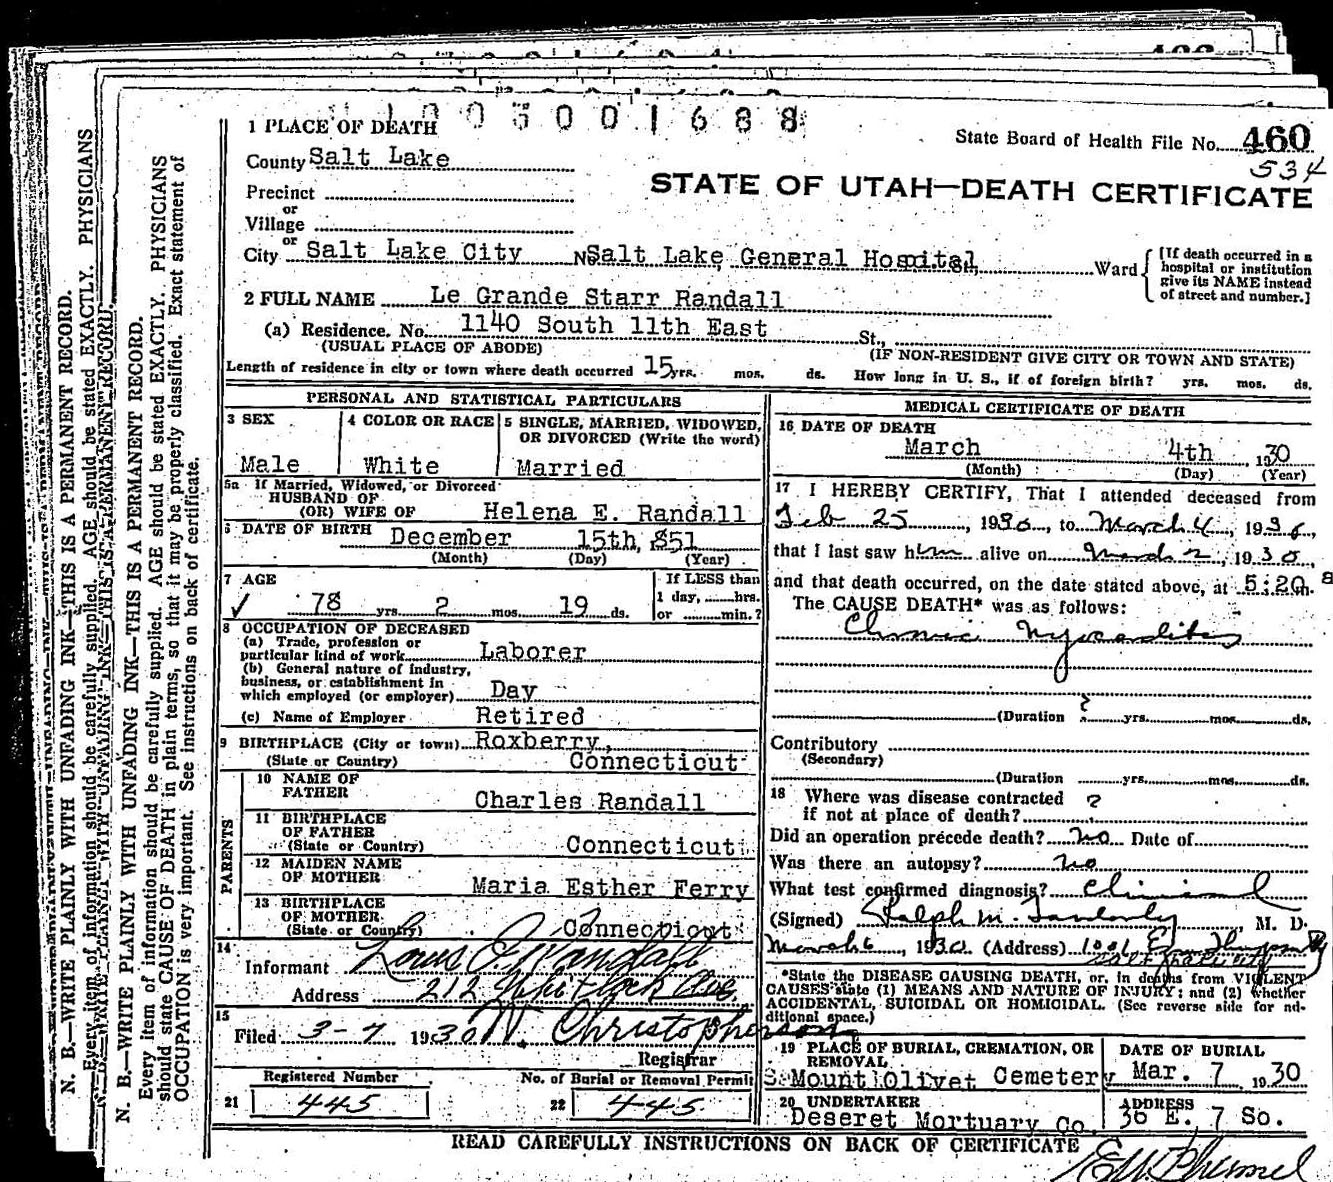 1003001688
State Board of Health File No. 460
534
STATE OF UTAH—DEATH CERTIFICATE
1 PLACE OF DEATH
County Salt Lake
Precinct
or
Village
or
City Salt Lake City No Salt Lake General Hospital Ward
[If death occurred in a
hospital or institution
give its NAME instead
of street and number.]
2 FULL NAME Le Grande Starr Randall
(a) Residence. No. 1140 South 11th East St.,
(USUAL PLACE OF ABODE) (IF NON-RESIDENT GIVE CITY OR TOWN AND STATE)
Length of residence in city or town where death occurred 15 yrs. mos. ds. How long in U. S., if of foreign birth? yrs. mos. ds.
PERSONAL AND STATISTICAL PARTICULARS
3 SEX 4 COLOR OR RACE 5 SINGLE, MARRIED, WIDOWED,
OR DIVORCED (Write the word)
Male White Married
5a If Married, Widowed, or Divorced
HUSBAND OF
(OR) WIFE OF Helena E. Randall
6 DATE OF BIRTH December 15th, 851
(Month) (Day) (Year)
7 AGE If LESS than
1 day, hrs.
78 yrs. 2 mos. 19 ds. or min.?
8 OCCUPATION OF DECEASED
(a) Trade, profession or
particular kind of work Laborer
(b) General nature of industry,
business, or establishment in
which employed (or employer) Day
(c) Name of Employer Retired
9 BIRTHPLACE (City or town) Roxberry,
(State or Country) Connecticut
PARENTS
10 NAME OF
FATHER Charles Randall
11 BIRTHPLACE
OF FATHER
(State or Country) Connecticut
12 MAIDEN NAME
OF MOTHER Maria Esther Ferry
13 BIRTHPLACE
OF MOTHER
(State or Country) Connecticut
14
Informant Randall
Address 212 Ave.
15
Filed 3-7 1930 W. Christopherson
Registrar
Registered Number No. of Burial or Removal Permit
21 445 22 445
MEDICAL CERTIFICATE OF DEATH
16 DATE OF DEATH
March 4th 1930
(Month) (Day) (Year)
17 I HEREBY CERTIFY, That I attended deceased from
Feb 25, 1930, to March 4, 1930,
that I last saw him alive on March 2, 1930,
and that death occurred, on the date stated above, at 5:20 a m.
The CAUSE DEATH* was as follows:
Chronic Myocarditis
(Duration ? yrs. mos. ds.
Contributory
(Secondary)
(Duration yrs. mos. ds.
18 Where was disease contracted
if not at place of death? ?
Did an operation precede death? no Date of
Was there an autopsy? no
What test confirmed diagnosis? Clinical
(Signed) Ralph M., M. D.
March 6, 1930 (Address) 1001
*State the DISEASE CAUSING DEATH, or, in deaths from VIOLENT
CAUSES state (1) MEANS AND NATURE OF INJURY; and (2) whether
ACCIDENTAL, SUICIDAL OR HOMICIDAL. (See reverse side for ad-
ditional space.)
19 PLACE OF BURIAL, CREMATION, OR
REMOVAL
Mount Olivet Cemetery
DATE OF BURIAL
Mar. 7 1930
20 UNDERTAKER
Deseret Mortuary Co.
ADDRESS
36 E. 7 So.
READ CAREFULLY INSTRUCTIONS ON BACK OF CERTIFICATE
N. B.—WRITE PLAINLY WITH UNFADING INK—THIS IS A PERMANENT RECORD.
Every item of information should be carefully supplied. AGE should be stated EXACTLY. PHYSICIANS
should state CAUSE OF DEATH in plain terms, so that it may be properly classified. Exact statement of
OCCUPATION is very important. See instructions on back of certificate.
N. B.—WRITE PLAINLY WITH UNFADING INK—THIS IS A PERMANENT RECORD.
Every item of information should be carefully supplied. AGE should be stated EXACTLY. PHYSICIANS